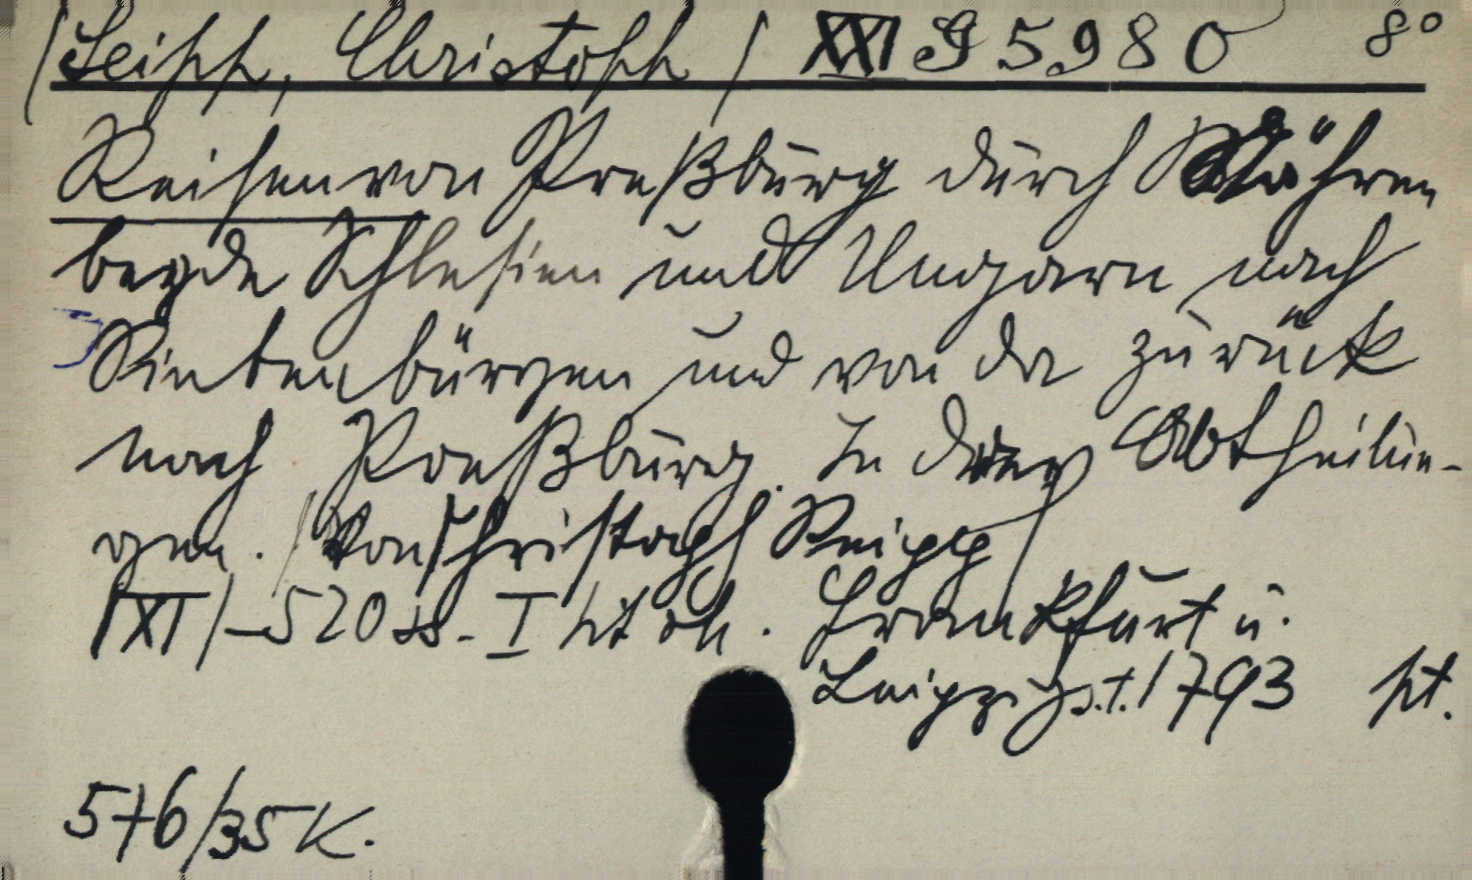 (Seipp, Christoph) XXI G 5980 8°
Reisen von Preßburg durch Mähren
beyde Schlesien und Ungarn nach
Siebenbürgen und von da zurück
nach Preßburg. In drey Abtheilun-
gen. (Von Christoph Seipp)
(XI) - 520 ss. - I. Frankfurt u.
Leipzig s.t. 1793 pt.
576/35 K.